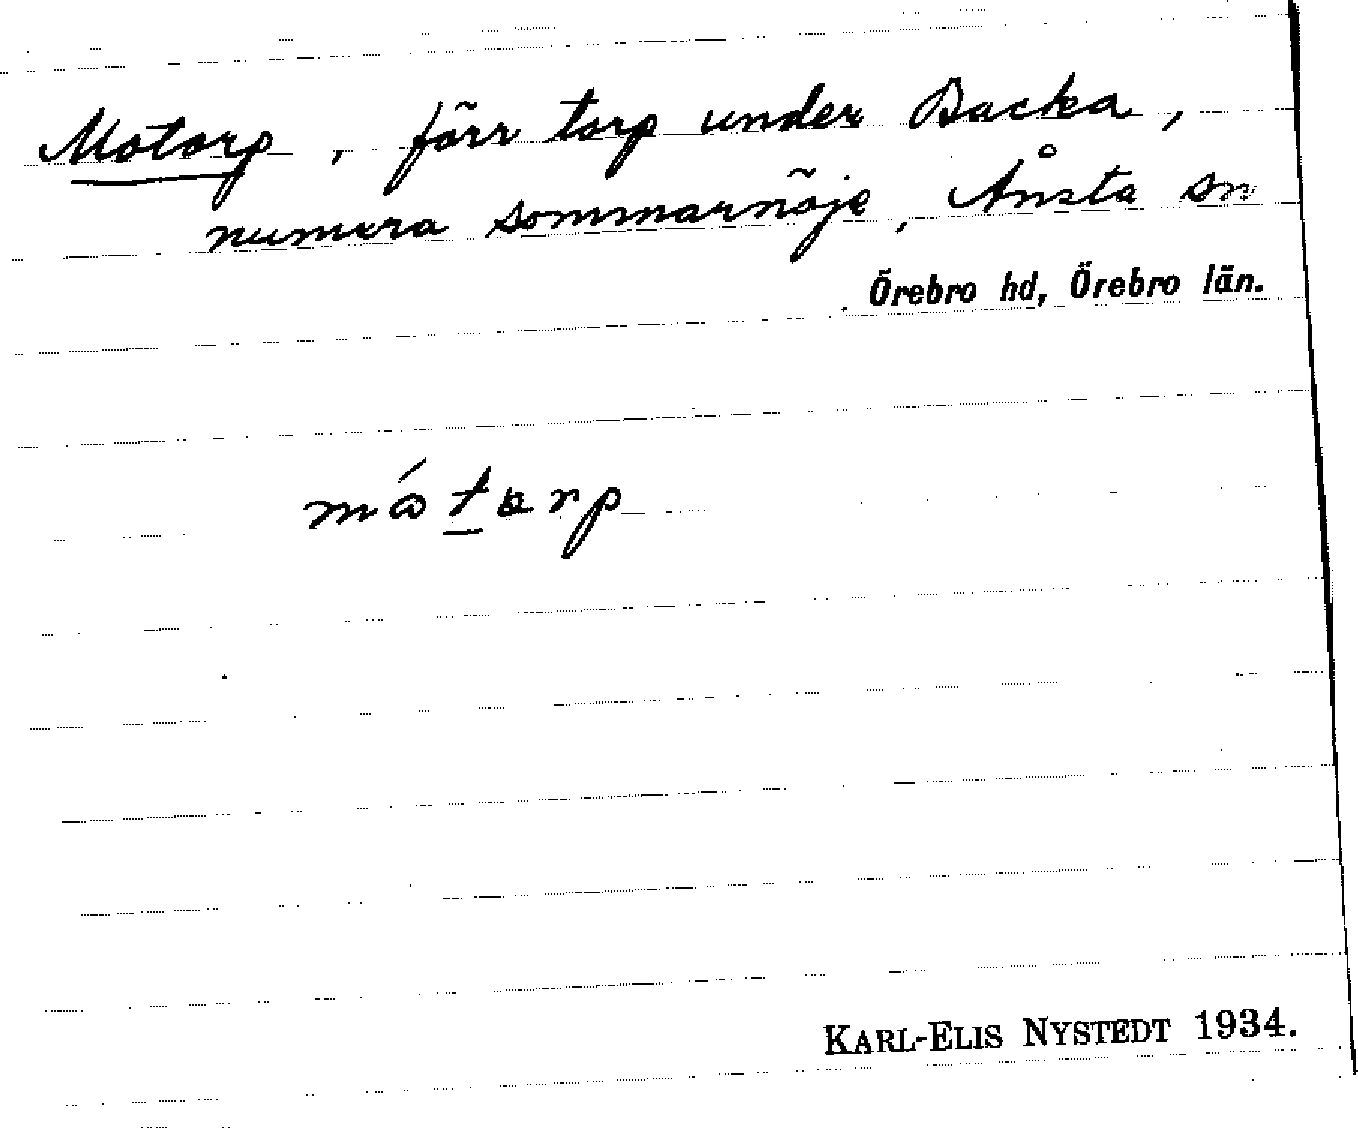 Motorp, förr torp under Backa,
numera sommarnöje, Ånsta sn
Örebro hd, Örebro län.
mótorp
KARL-ELIS NYSTEDT 1934.